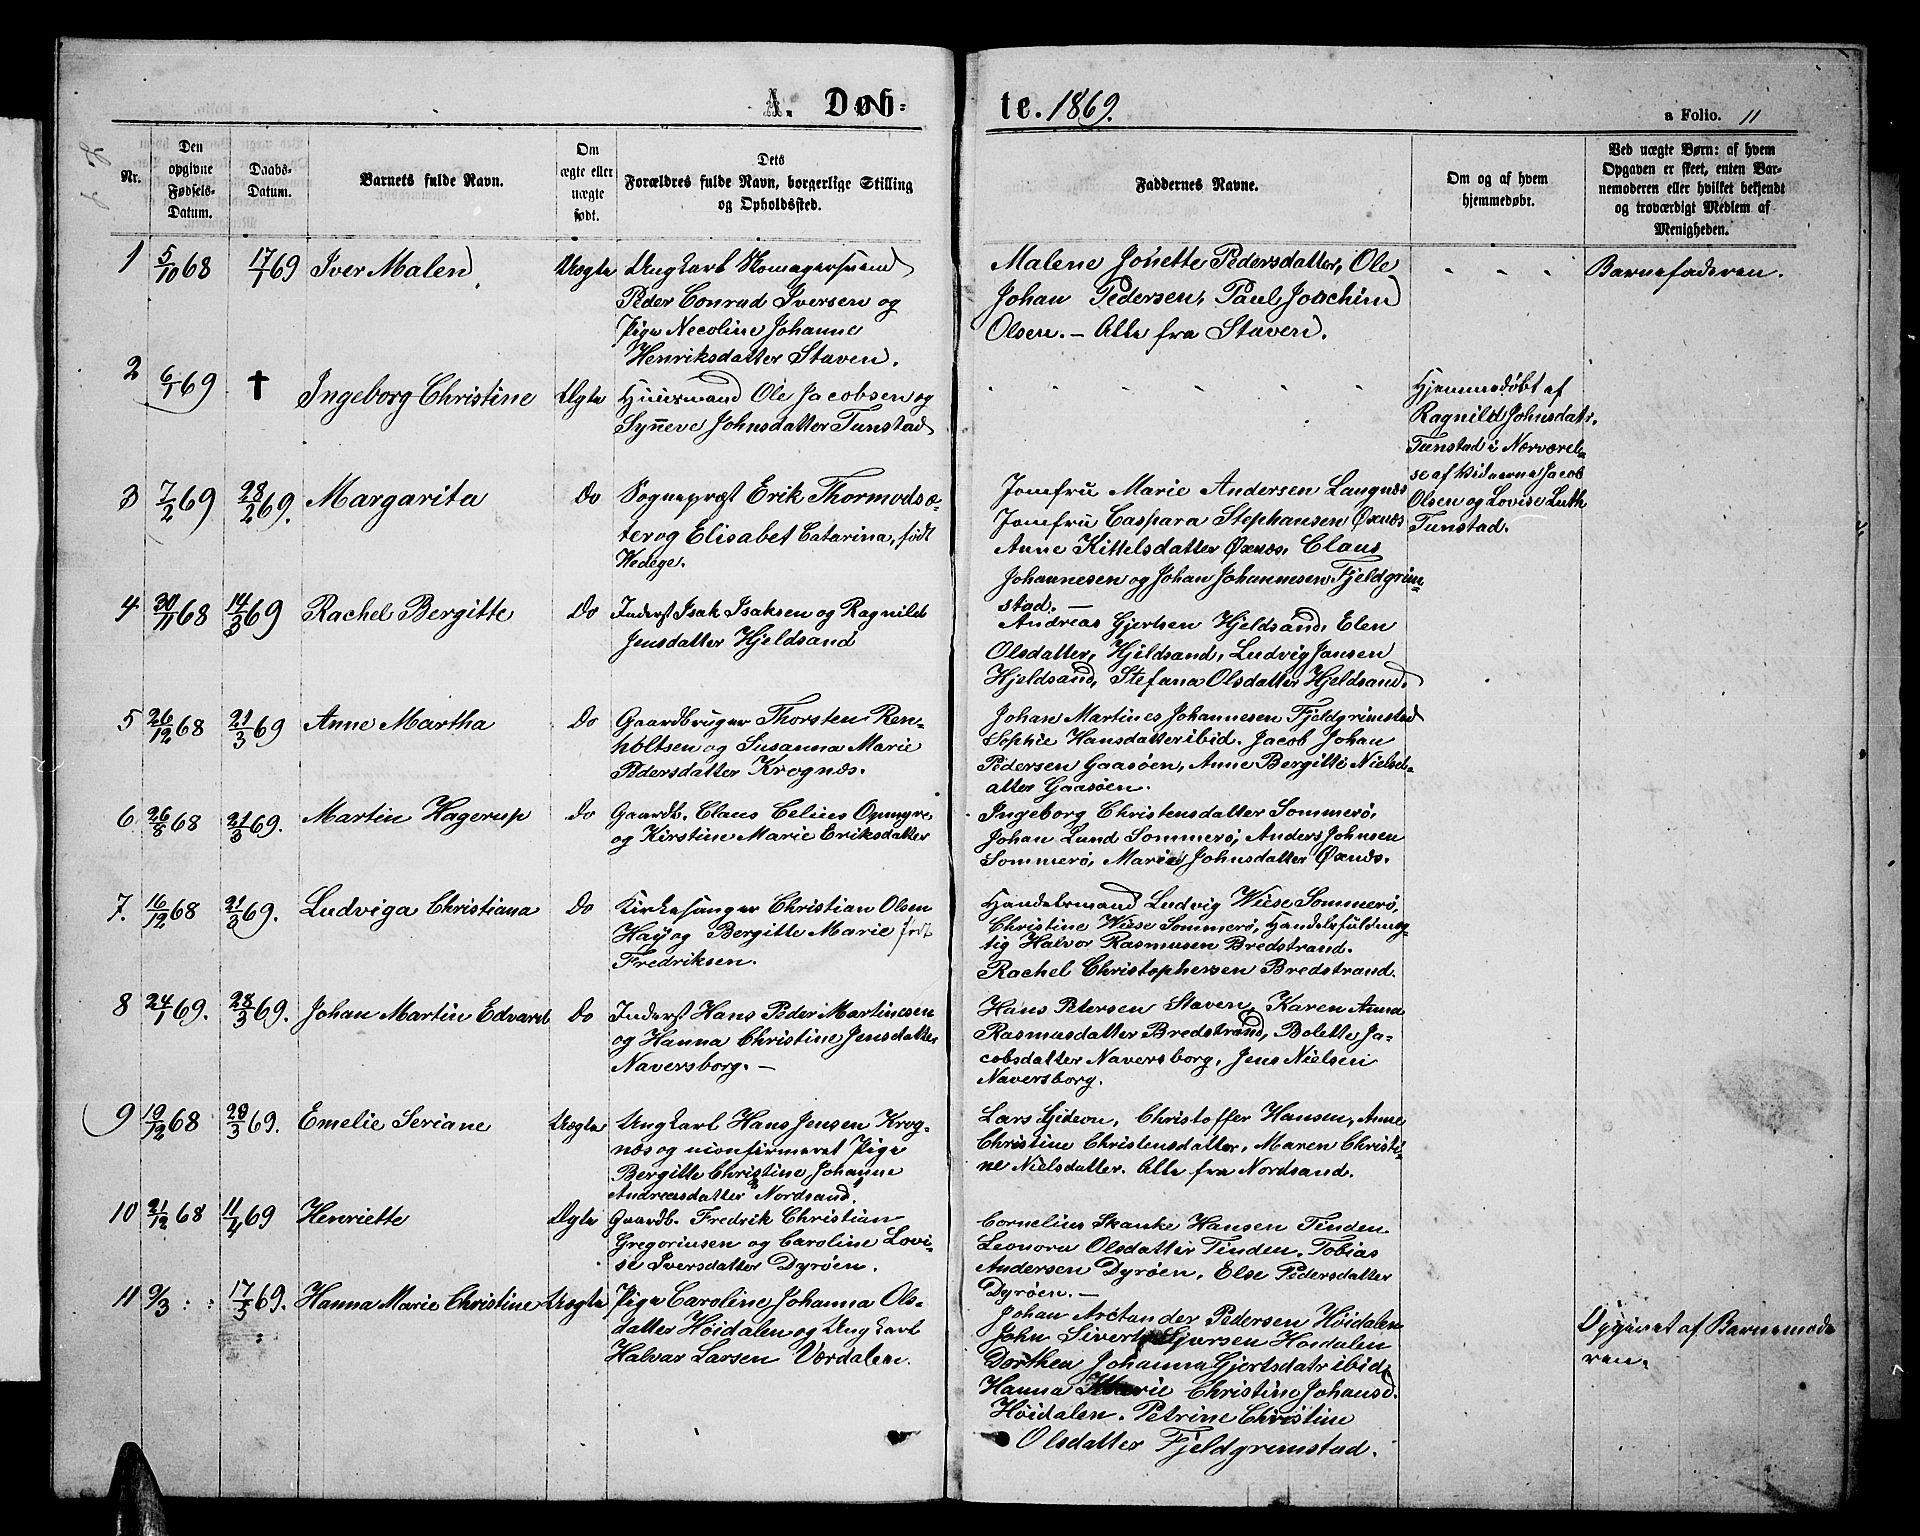 A. Døb-
te. 1869.
a Folio. 11
Nr.
Den opgivne Fødsels-Datum.
Daabs-Datum.
Barnets fulde Navn.
Om ægte eller uægte født.
Dets Forældres fulde Navn, borgerlige Stilling og Opholdssted.
Faddernes Navne.
Om og af hvem hjemmedøbt.
Ved uægte Børn: af hvem Opgaven er skeet, enten Barnemoderen eller hvilket bekjendt og troværdigt Medlem af Menigheden.
1 5/10 68 17/1 69 Iver Malen Uægte Ungkarl Komagersvend
Peder Conrad Iversen og
Pige Necoline Johanne
Henriksdatter Staven.
Malene Jonette Pedersdatter, Ole
Johan Pedersen, Paul Joachim
Olsen. - Alle fra Staven.
Barnefaderen.
2 6/1 69 † Ingeborg Christine Ægte Huusmand Ole Jacobsen og
Synneve Johnsdatter Tunstad
Hjemmedøbt af
Ragnild Johnsdatr.
Tunstad i Nærværel-
se af Vidnerne Jacob
Olsen og Lovise Luth
Tunstad.
3 7/2 69 28/2 69. Margarita do Sognepræst Erik Thormodsæ-
ter og Elisabet Catarina, født
Wedege.
Jomfru Marie Andersen Langnæs
Jomfru Caspara Stephansen Øxnæs
Anne Kittelsdatter Øxnæs, Claus
Johannesen og Johan Johannesen Fjeldgrim-
stad. -
4 30/11 68 14/3 69 Rachel Bergitte do Inderst Isak Isaksen og Ragnild
Jensdatter Hjeldsand
Andreas Gjertsen Hjeldsand, Elen
Olsdatter, Hjeldsand, Ludvig Jansen
Hjeldsand, Stefana Olsdatter Hjeldsand.
5 26/12 68 21/3 69 Anne Martha do Gaardbruger Thorsten Ren-
holtsen og Susanna Marie
Pedersdatter Krognæs.
Johan Martines Johannesen Fjeldgrimstad
Sophie Hansdatter ibid. Jacob Johan
Pedersen Gaasøen, Anne Bergitte Nielsd-
atter Gaasøen.
6 26/8 68 21/3 69. Martin Hagerup do Gaardb. Claus Celius
og Kirstine Marie Eriksdatter
Ingeborg Christensdatter Sommerø,
Johan Lund Sommerø, Anders Johnsen
Sommerø, Marie Johnsdatter Øxnæs.
7. 16/12 68 21/3 69. Ludviga Christiana do Kirkesanger Christian Olsen
Hay og Bergitte Marie født
Fredriksen.
Handelsmand Ludvig Wiese Sommerø,
Christine Wiese Sommerø, Handelsfuldmæg-
tig Halvor Rasmusen Bredstrand.
Rachel Christophersen Bredstrand.
8 24/1 69. 28/3 69. Johan Martin Edvard do Inderst Hans Peder Martinesen
og Hanna Christine Jensdatter
Naversborg. -
Hans Petersen Staven, Karen Anna
Rasmusdatter Bredstrand, Bolette Ja-
cobsdatter Naversborg, Jens Nielsen
Naversborg.
9 19/12 68 28/3 69. Emelie Seriane Uægte Ungkarl Hans Jensen Krog-
næs og uconfirmeret Pige
Bergitte Christine Johanne
Andreasdatter Nordsand.
Lars Gideon, Christoffer Hansen, Anne
Christine Christensdatter, Maren Christi-
ne Nielsdatter. Alle fra Nordsand.
10 21/12 68 11/4 69 Henriette Ægte Gaardb. Fredrik Christian
Gregoriusen og Caroline Lovi-
se Iversdatter Dyrøen.
Cornelius Skanke Hansen Tinden
Leonora Olsdatter Tinden. Tobias
Andersen Dyrøen, Else Pedersdatter
Dyrøen. -
11 9/3 : : 17/5 69. Hanna Marie Christine Uægte Pige Caroline Johanna Ols-
datter Høidalen og Ungkarl
Halvar Larsen Værdalen.
Johan Arctander Pedersen Høidalen
John Sivert Høidalen
Dorthea Johanna Gjertsdatr ibid,
Hanna Marie Christine Johansd.
Høidalen. Petrine Christine
Olsdatter Fjeldgrimstad.
Opgivet af Barnemode
ren.